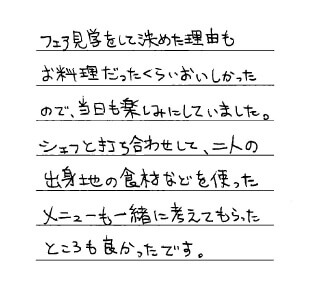 フェア見学をして決めた理由も
お料理だったくらいおいしかった
ので、当日も楽しみにしていました。
シェフと打ち合わせして、二人の
出身地の食材などを使った
メニューも一緒に考えてもらった
ところも良かったです。